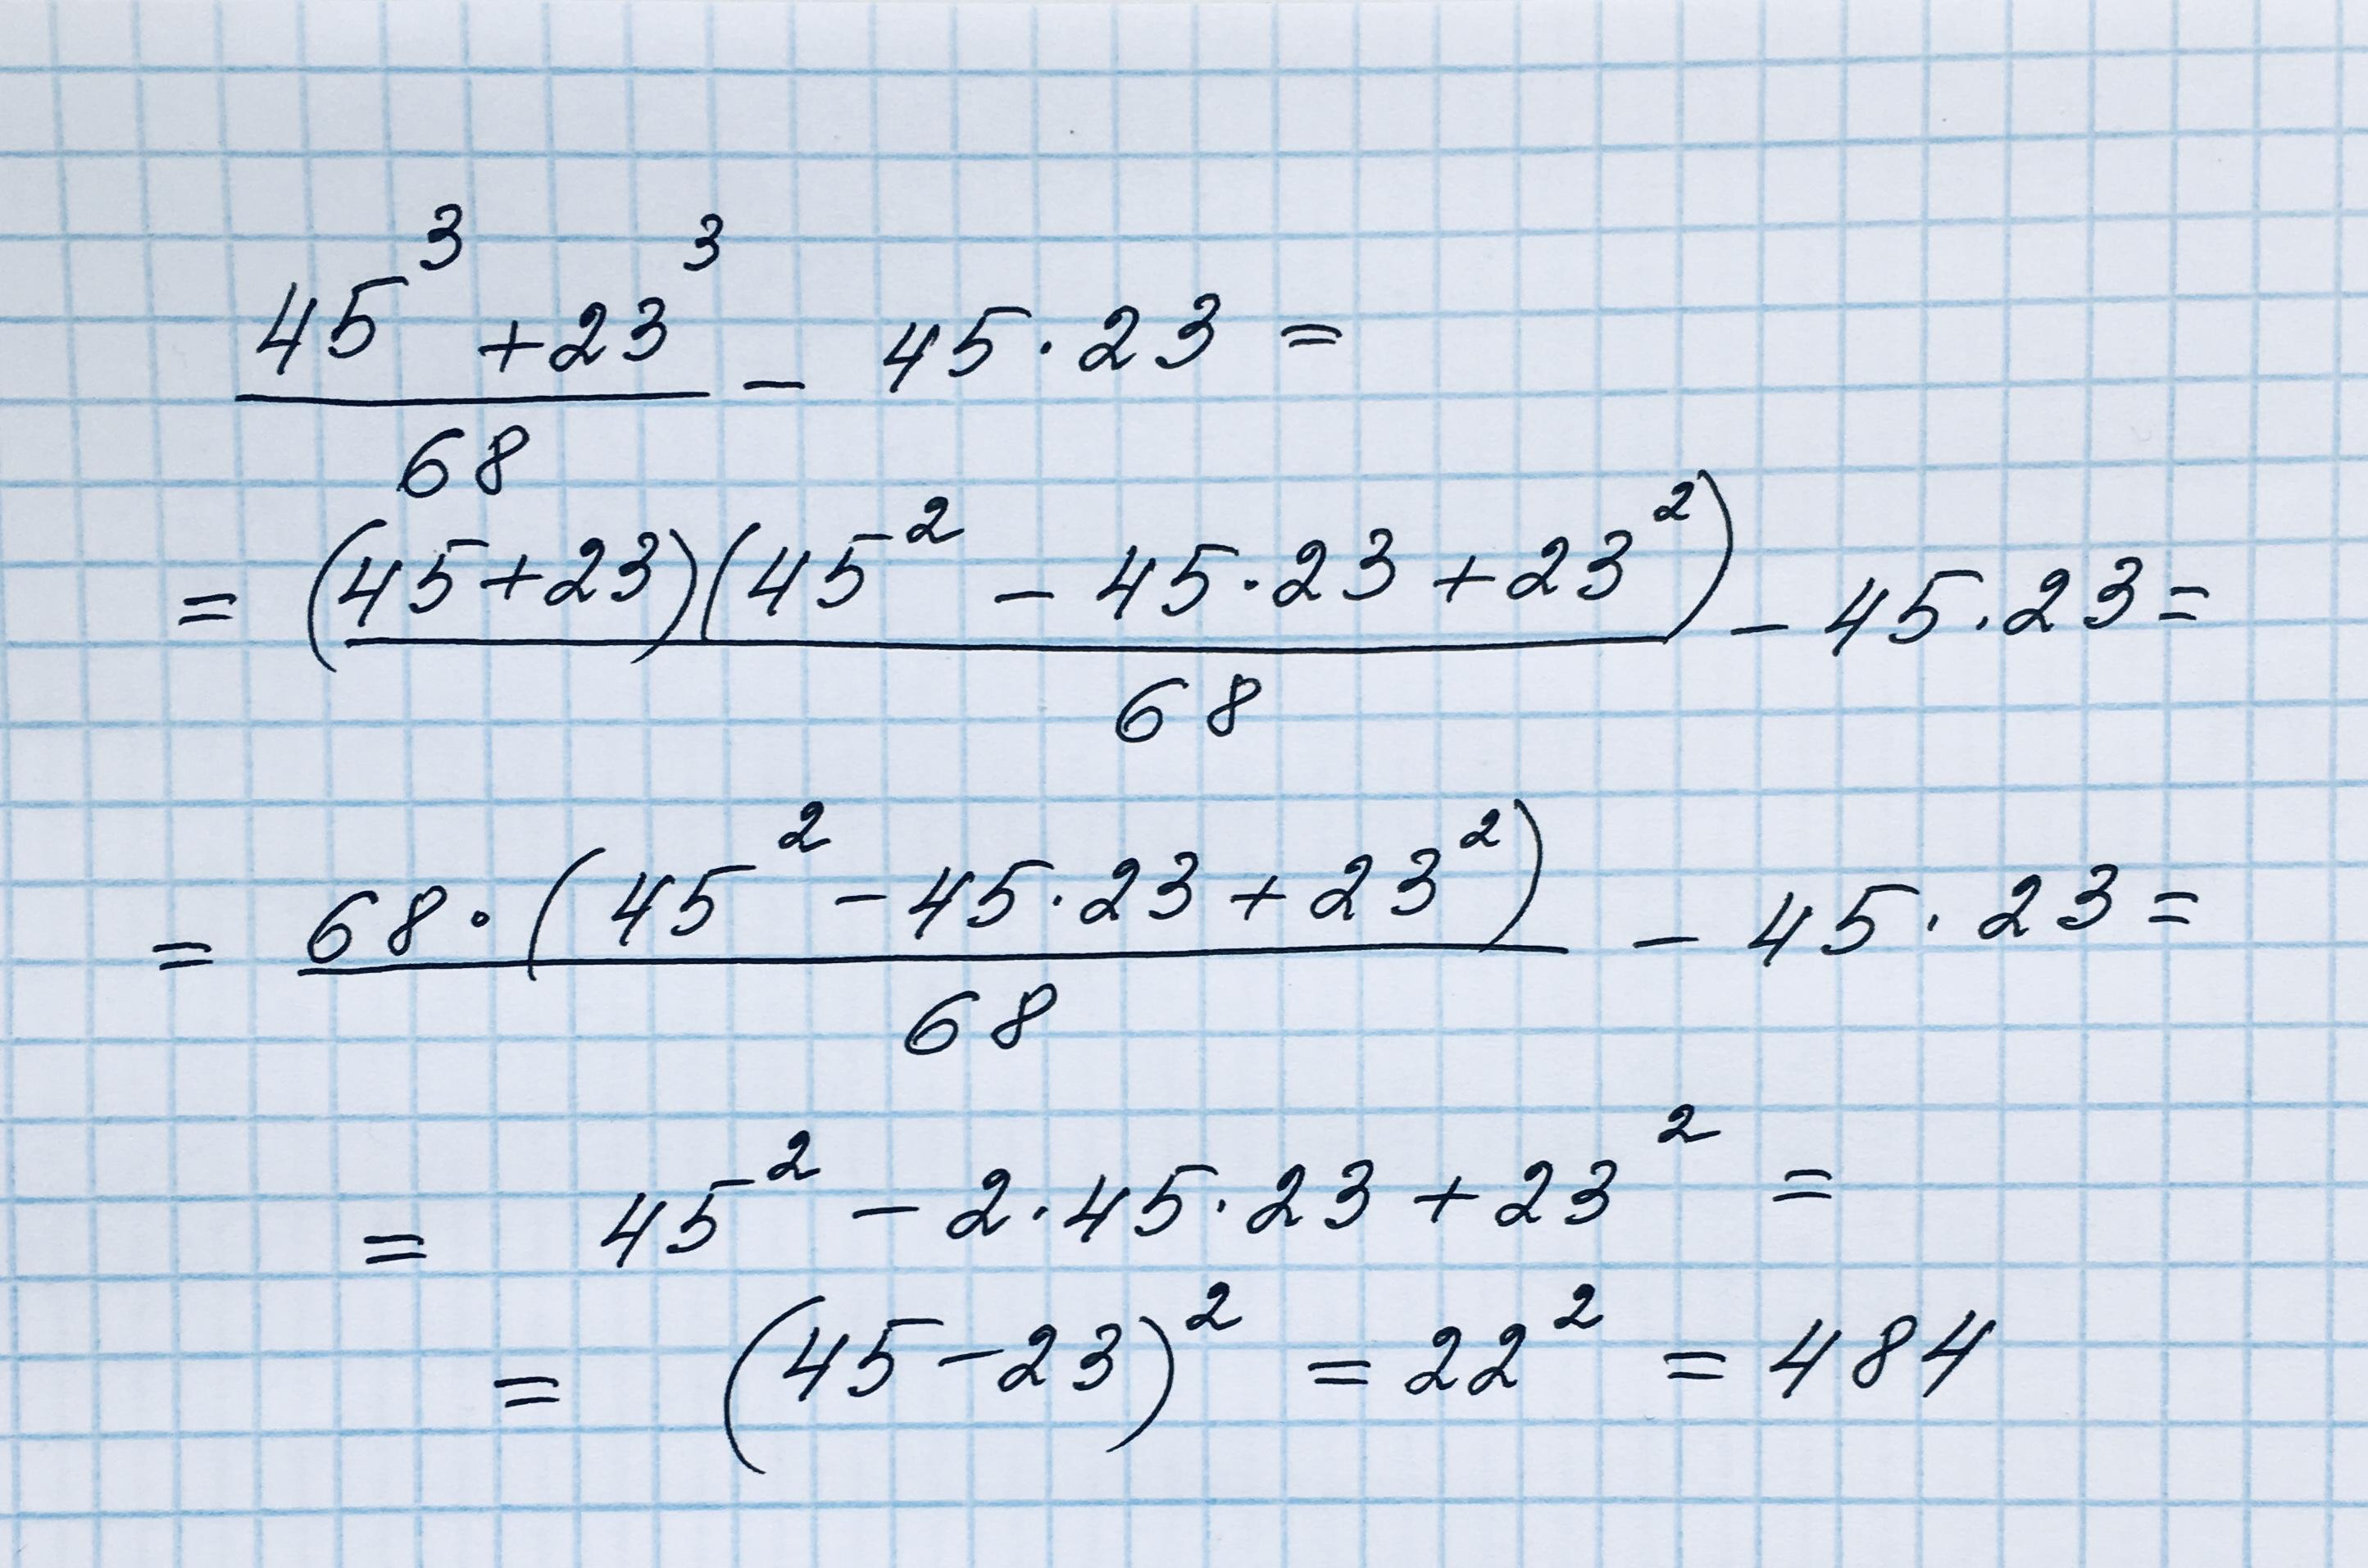 45³ + 23³ / 68 − 45 · 23 =
= (45 + 23)(45² − 45 · 23 + 23²) / 68 − 45 · 23 =
= 68 · (45² − 45 · 23 + 23²) / 68 − 45 · 23 =
= 45² − 2 · 45 · 23 + 23² =
= (45 − 23)² = 22² = 484